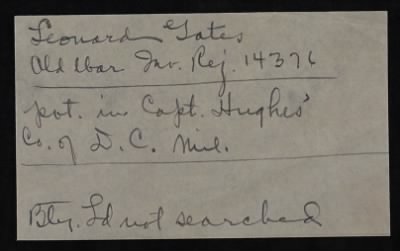 Leonard Gates
Old War Inv. Rej. 14376
pvt. in Capt. Hughes'
Co. of D.C. Mil.
Bty. Ld not searched